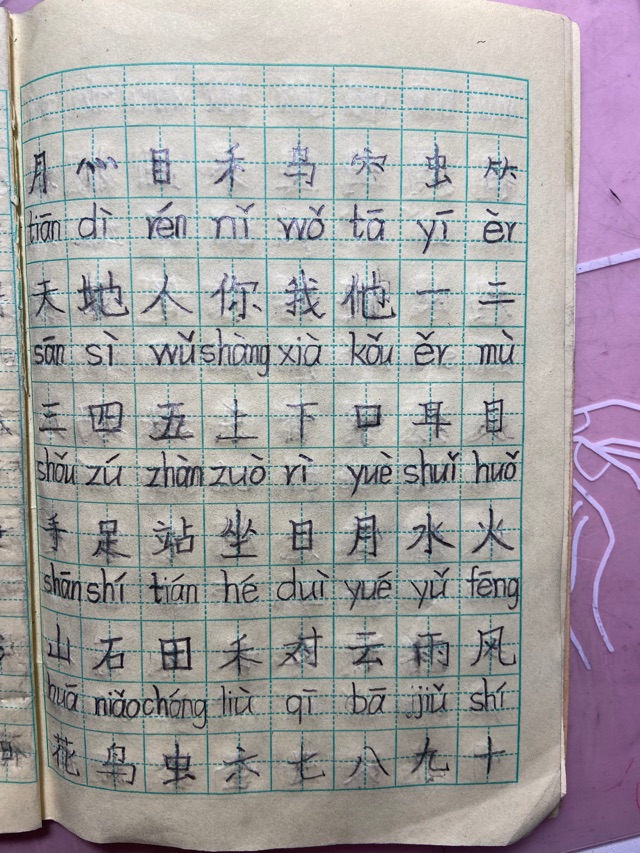 月 目 禾 鸟 穴 虫 ⺮
tiān dì rén nǐ wǒ tā yī èr
天 地 人 你 我 他 一 二
sān sì wǔ shàng xià kǒu ěr mù
三 四 五 上 下 口 耳 目
shǒu zú zhàn zuò rì yuè shuǐ huǒ
手 足 站 坐 日 月 水 火
shān shí tián hé duì yué yǔ fēng
山 石 田 禾 对 云 雨 风
huā niǎo chóng liù qī bā jiǔ shí
花 鸟 虫 六 七 八 九 十